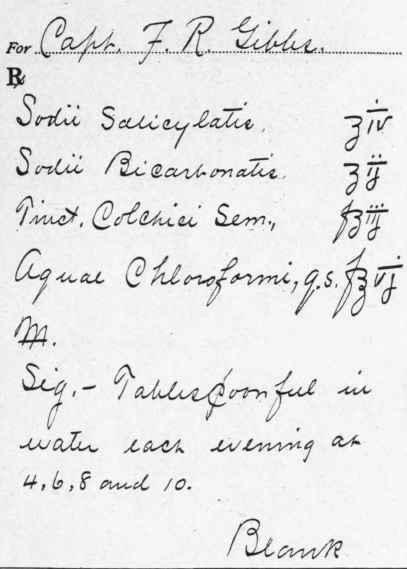 For Capt. F. R. Gibbs.
℞
Sodii Salicylatis, ʒiv
Sodii Bicarbonatis ʒij
Tinct. Colchici Sem., fʒiij
Aquae Chloroformi, q.s. f℥vj
M.
Sig.- Tablespoonful in
water each evening at
4, 6, 8 and 10.
Blank